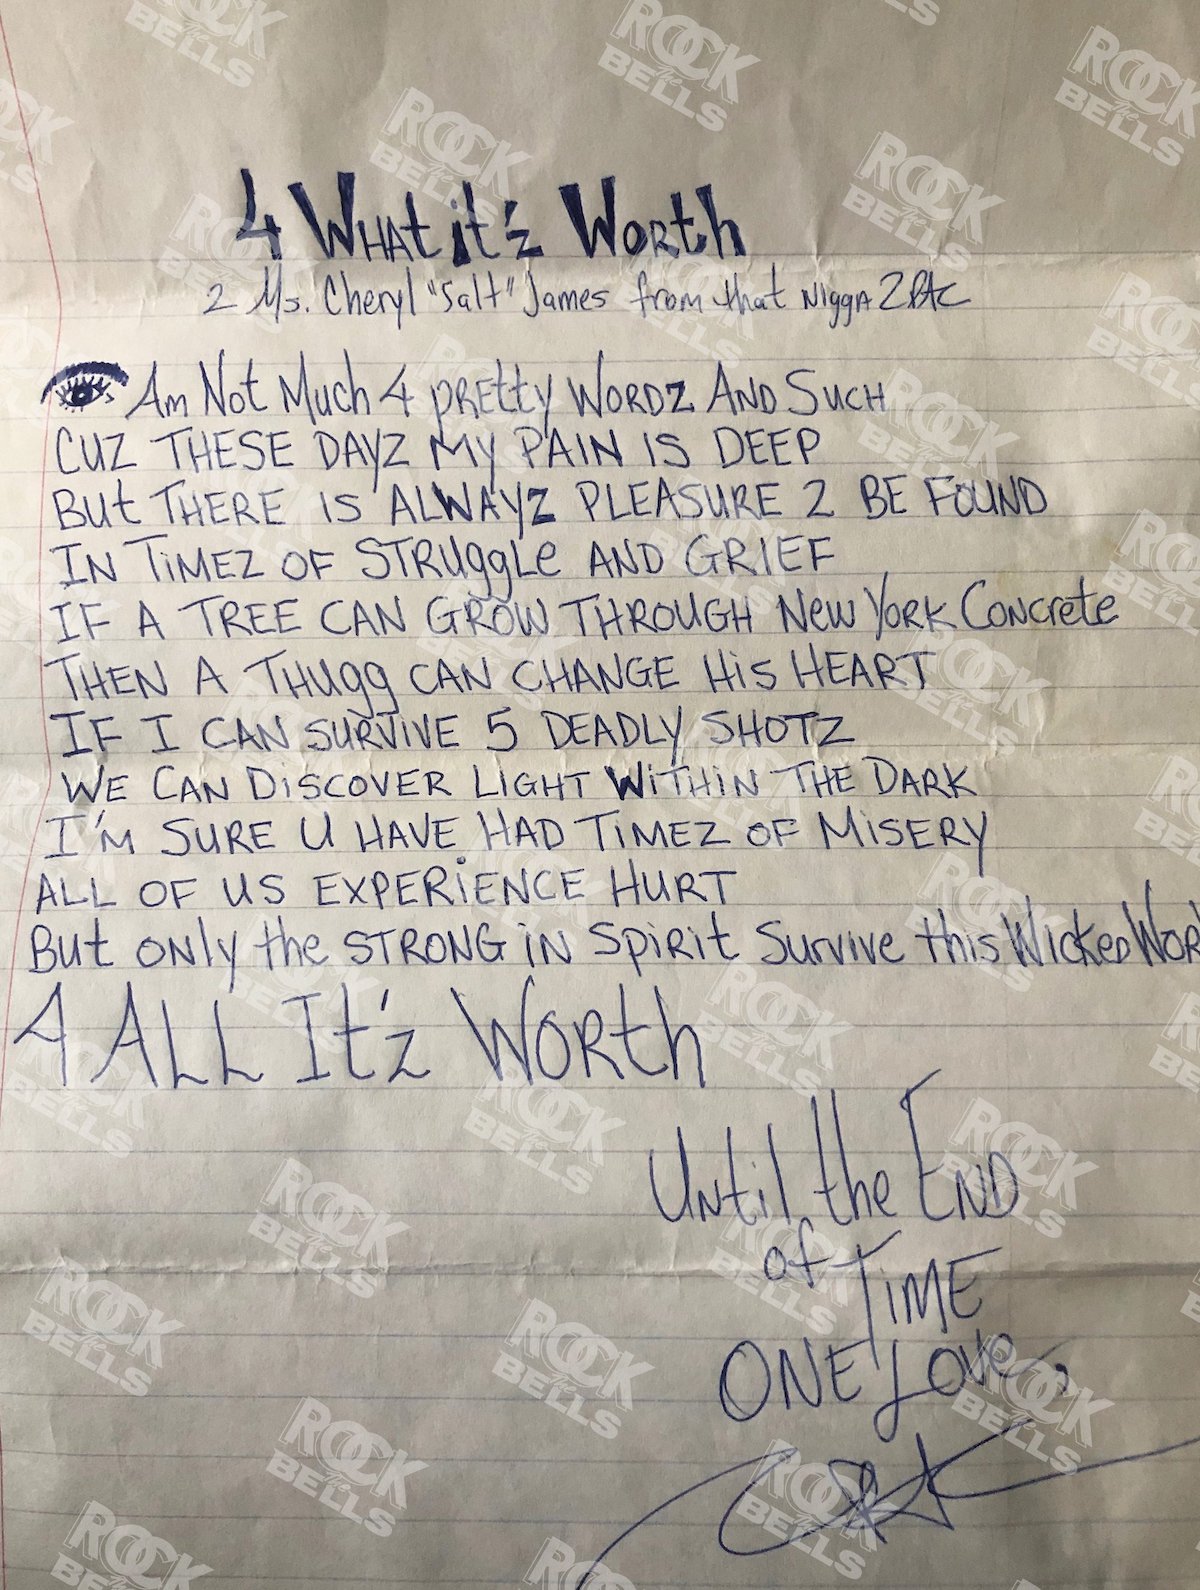 4 What it'z Worth
2 Ms. Cheryl "Salt" James from that Nigga 2PAC
Am Not Much 4 pretty wordz And Such
CUZ THESE DAYZ MY PAIN IS DEEP
But THERE IS ALWAYZ PLEASURE 2 BE FOUND
IN TiMEZ OF STRuggLe AND GRIEF
IF A TREE CAN GROW THROUGH New York Concrete
THEN A THugg CAN CHANGE HiS HEART
IF I CAN SURVIVE 5 DEADLY SHOTZ
WE CAN DiSCOVER LIGHT WiTHiN THE DARK
I'M SURE U HAVE HAD TiMEZ OF MiSERY
ALL OF US EXPERiENCE HURT
But only the STRONG iN Spirit Survive this Wicked Wor
4 ALL It'z Worth
Until the END
of TiME
ONE Love,
2PAC
ROCK the BELLS